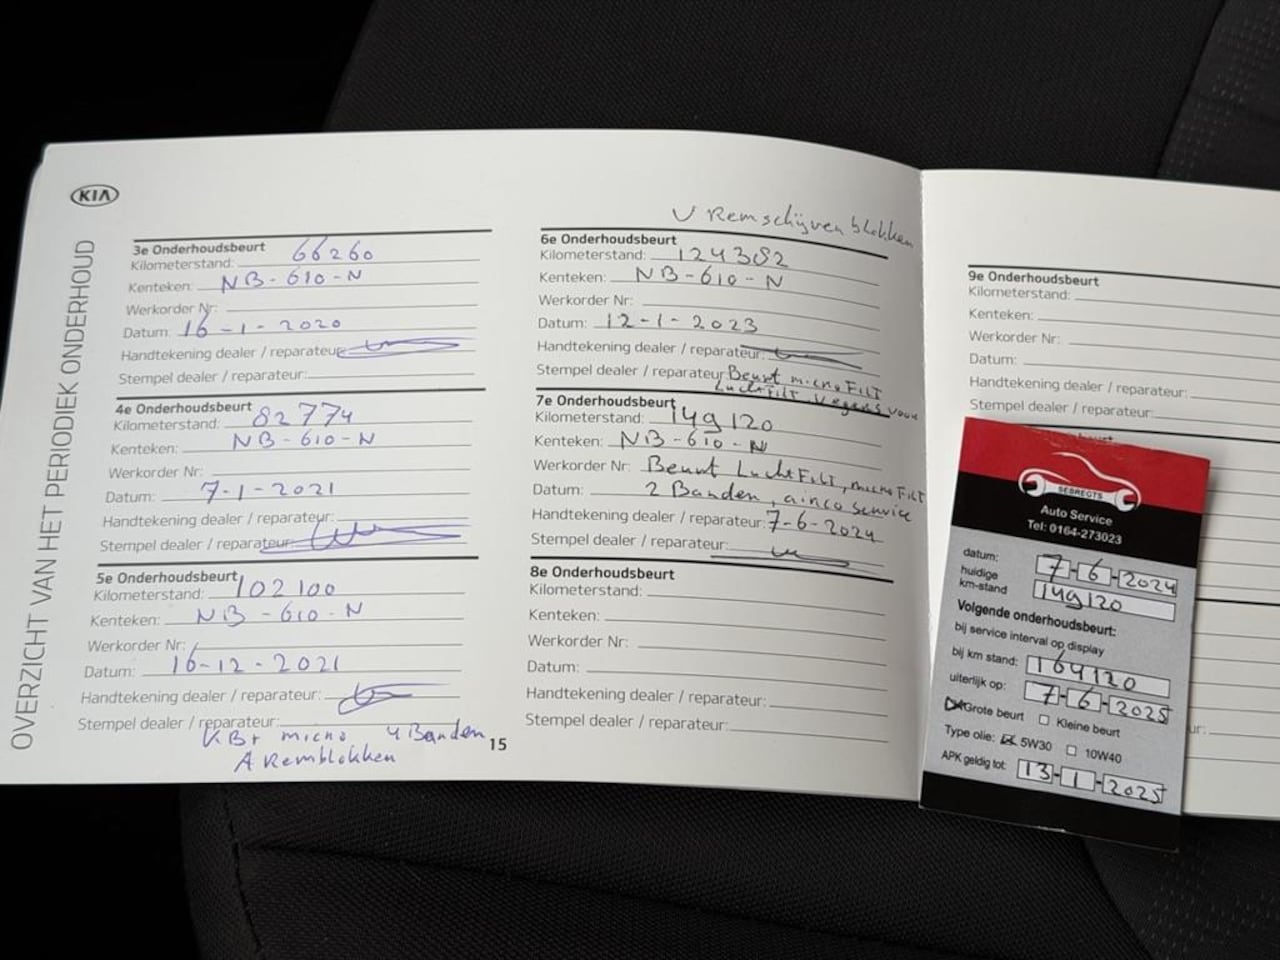 KIA
OVERZICHT VAN HET PERIODIEK ONDERHOUD
3e Onderhoudsbeurt
Kilometerstand: 66260
Kenteken: NB-610-N
Werkorder Nr:
Datum: 16-1-2020
Handtekening dealer / reparateur:
Stempel dealer / reparateur:
4e Onderhoudsbeurt
Kilometerstand: 82774
Kenteken: NB-610-N
Werkorder Nr:
Datum: 7-1-2021
Handtekening dealer / reparateur:
Stempel dealer / reparateur:
5e Onderhoudsbeurt
Kilometerstand: 102100
Kenteken: NB-610-N
Werkorder Nr:
Datum: 16-12-2021
Handtekening dealer / reparateur:
Stempel dealer / reparateur:
micro 4 Banden
A Remblokken
15
V Remschijven blokken
6e Onderhoudsbeurt
Kilometerstand: 124382
Kenteken: NB-610-N
Werkorder Nr:
Datum: 12-1-2023
Handtekening dealer / reparateur:
Stempel dealer / reparateur: Beurt micro Filt
Lucht Filt
7e Onderhoudsbeurt
Kilometerstand: 149120
Kenteken: NB-610-N
Werkorder Nr: Beurt Lucht Filt, micro Filt
Datum: 2 Banden, airco service
Handtekening dealer / reparateur: 7-6-2024
Stempel dealer / reparateur:
8e Onderhoudsbeurt
Kilometerstand:
Kenteken:
Werkorder Nr:
Datum:
Handtekening dealer / reparateur:
Stempel dealer / reparateur:
9e Onderhoudsbeurt
Kilometerstand:
Kenteken:
Werkorder Nr:
Datum:
Handtekening dealer / reparateur:
Stempel dealer / reparateur:
SEBREGTS
Auto Service
Tel: 0164-273023
datum: 7-6-2024
huidige
km-stand 149120
Volgende onderhoudsbeurt:
bij service interval op display
bij km stand: 164120
uiterlijk op: 7-6-2025
Grote beurt Kleine beurt
Type olie: 5W30 10W40
APK geldig tot: 13-1-2025